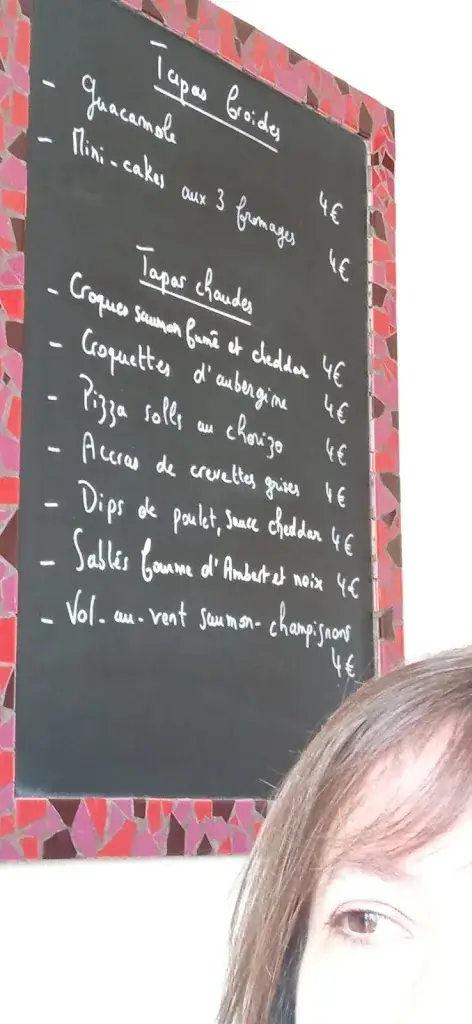 Tapas froides
- Guacamole 4€
- Mini-cakes aux 3 fromages 4€
Tapas chaudes
- Croques saumon fumé et cheddar 4€
- Croquettes d'aubergine 4€
- Pizza rolls au chorizo 4€
- Accras de crevettes grises 4€
- Dips de poulet, sauce cheddar 4€
- Sablés fourme d'Ambert et noix 4€
- Vol-au-vent saumon-champignons
4€